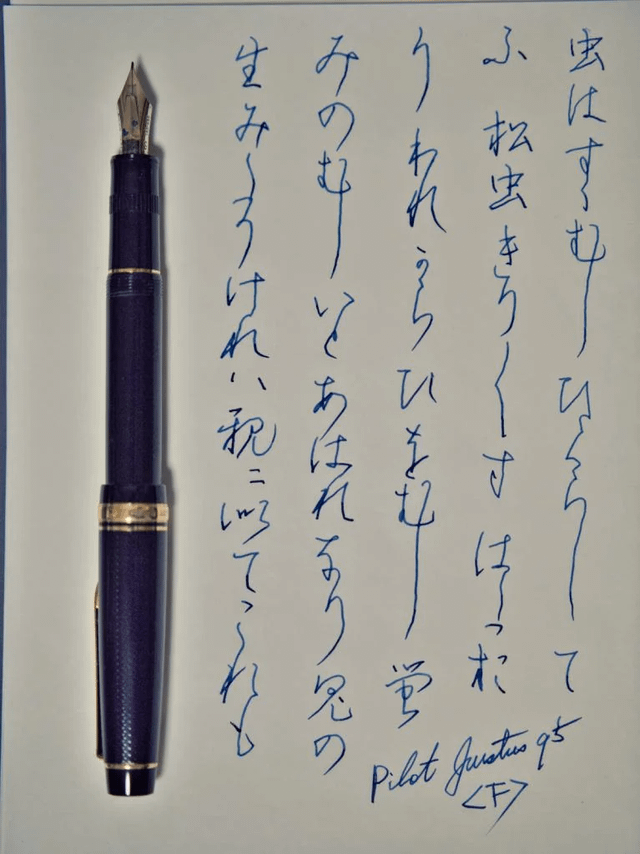 虫はすゝむし ひくらし て
ふ 松虫 きり〱す はたお
り われから ひをむし 蛍
みのむし いとあはれなり 鬼の
生みたりけれハ 親ニ似てこれも
Pilot Justus 95
<F>